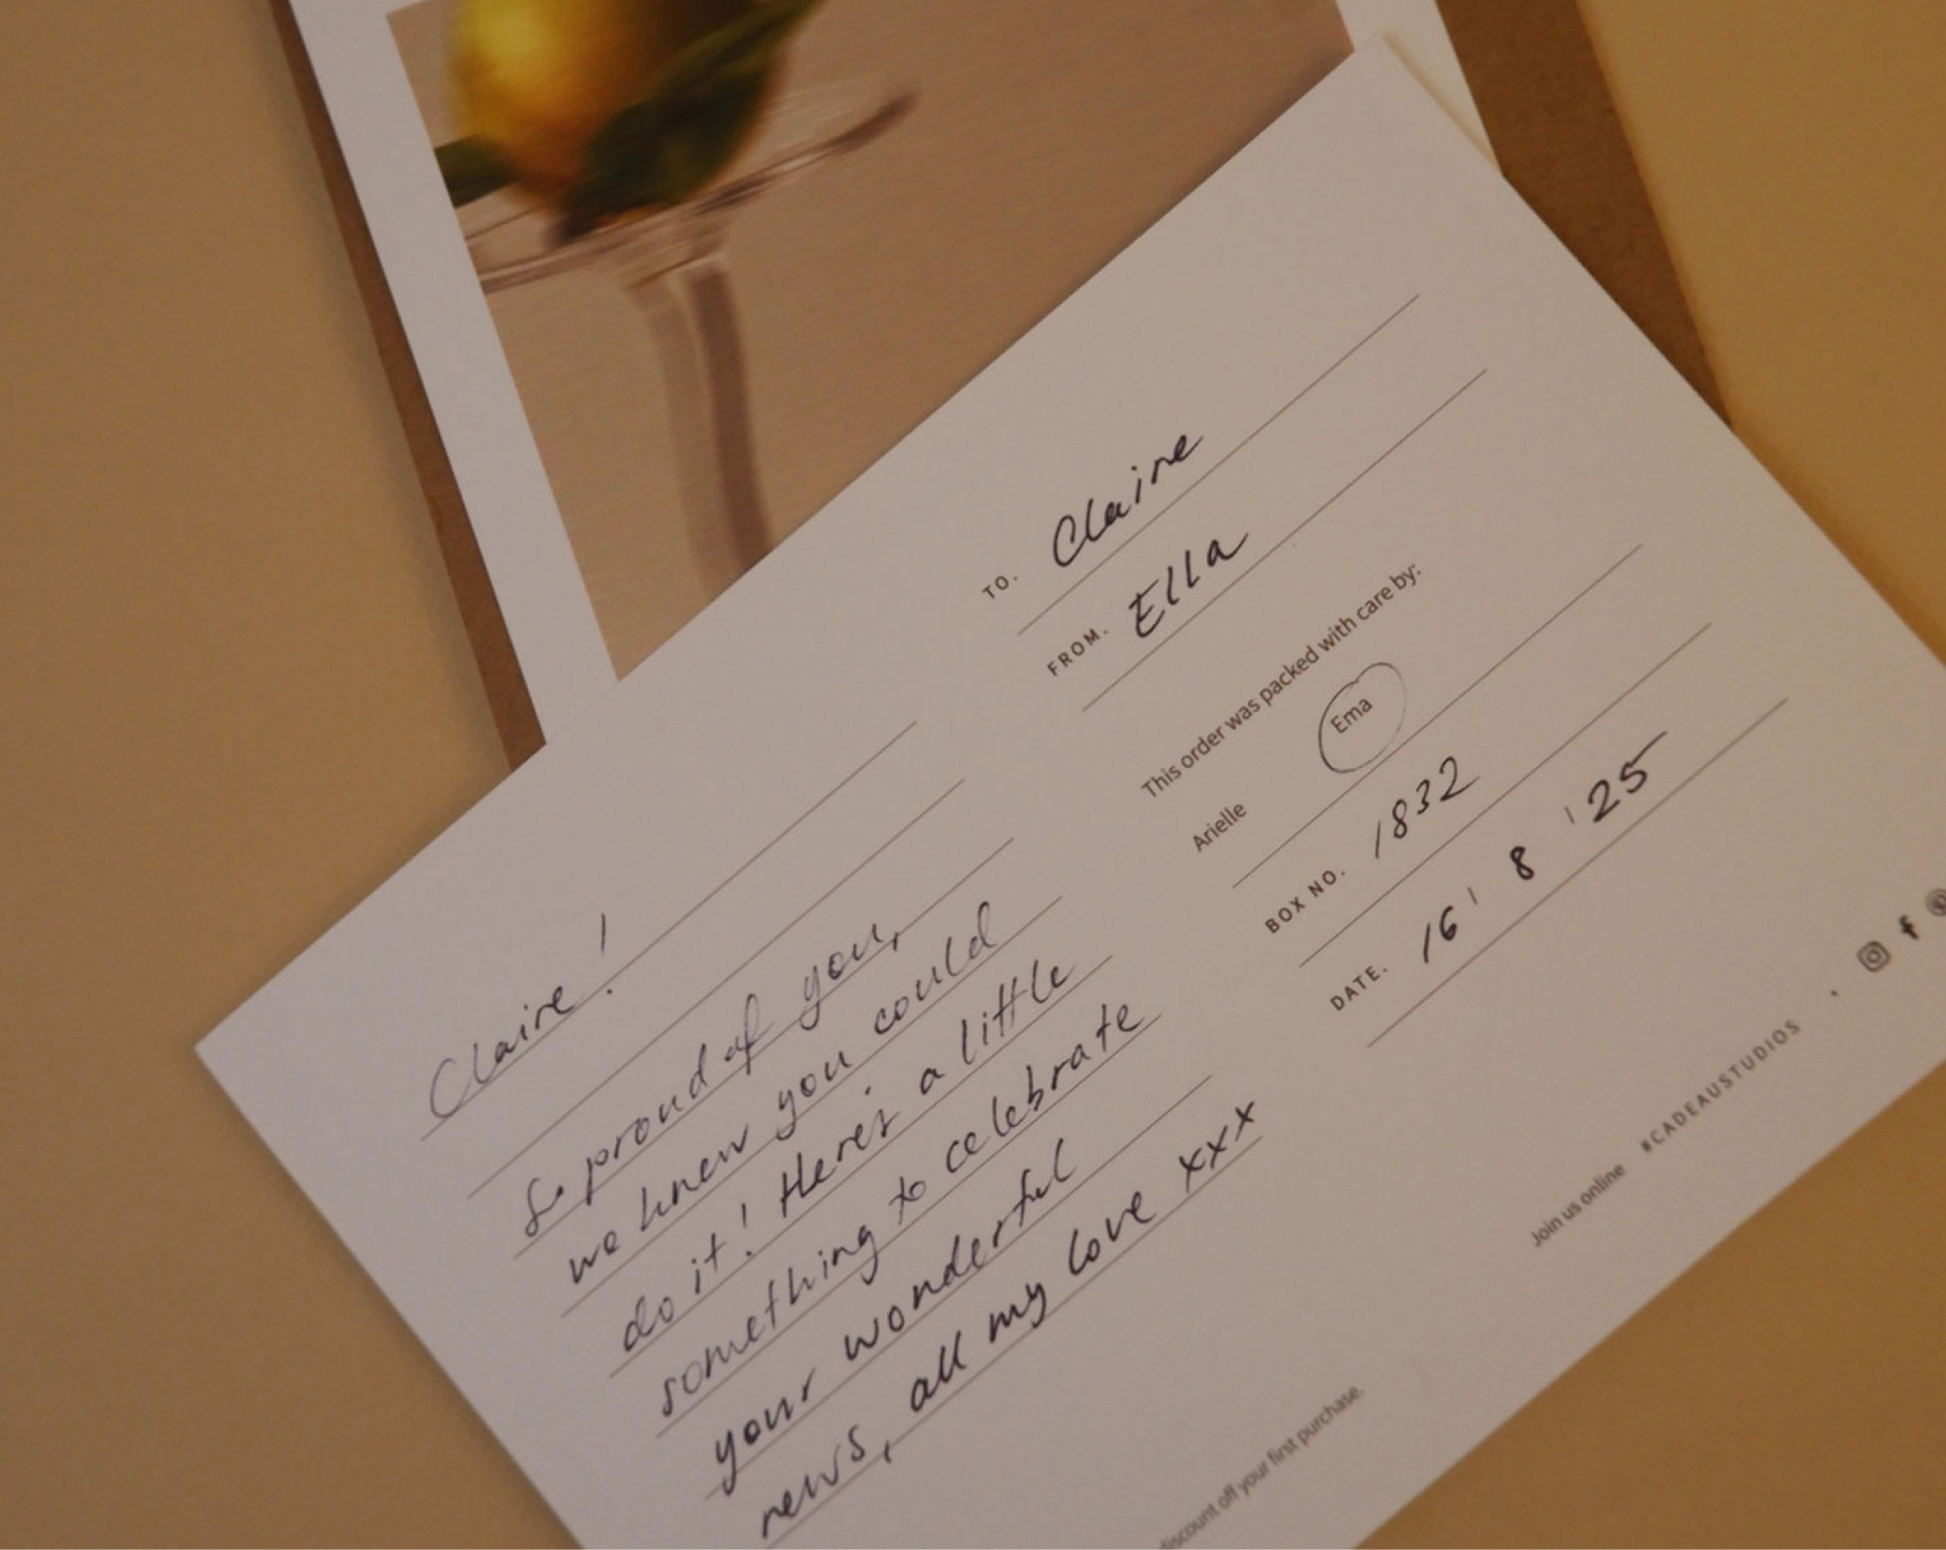 Claire!
So proud of you,
we knew you could
do it! Here's a little
something to celebrate
your wonderful
news, all my love xxx
TO. Claire
FROM. Ella
This order was packed with care by:
Arielle Ema
BOX NO. 1832
DATE. 16 / 8 / 25
Join us online #CADEAUSTUDIOS
discount off your first purchase.